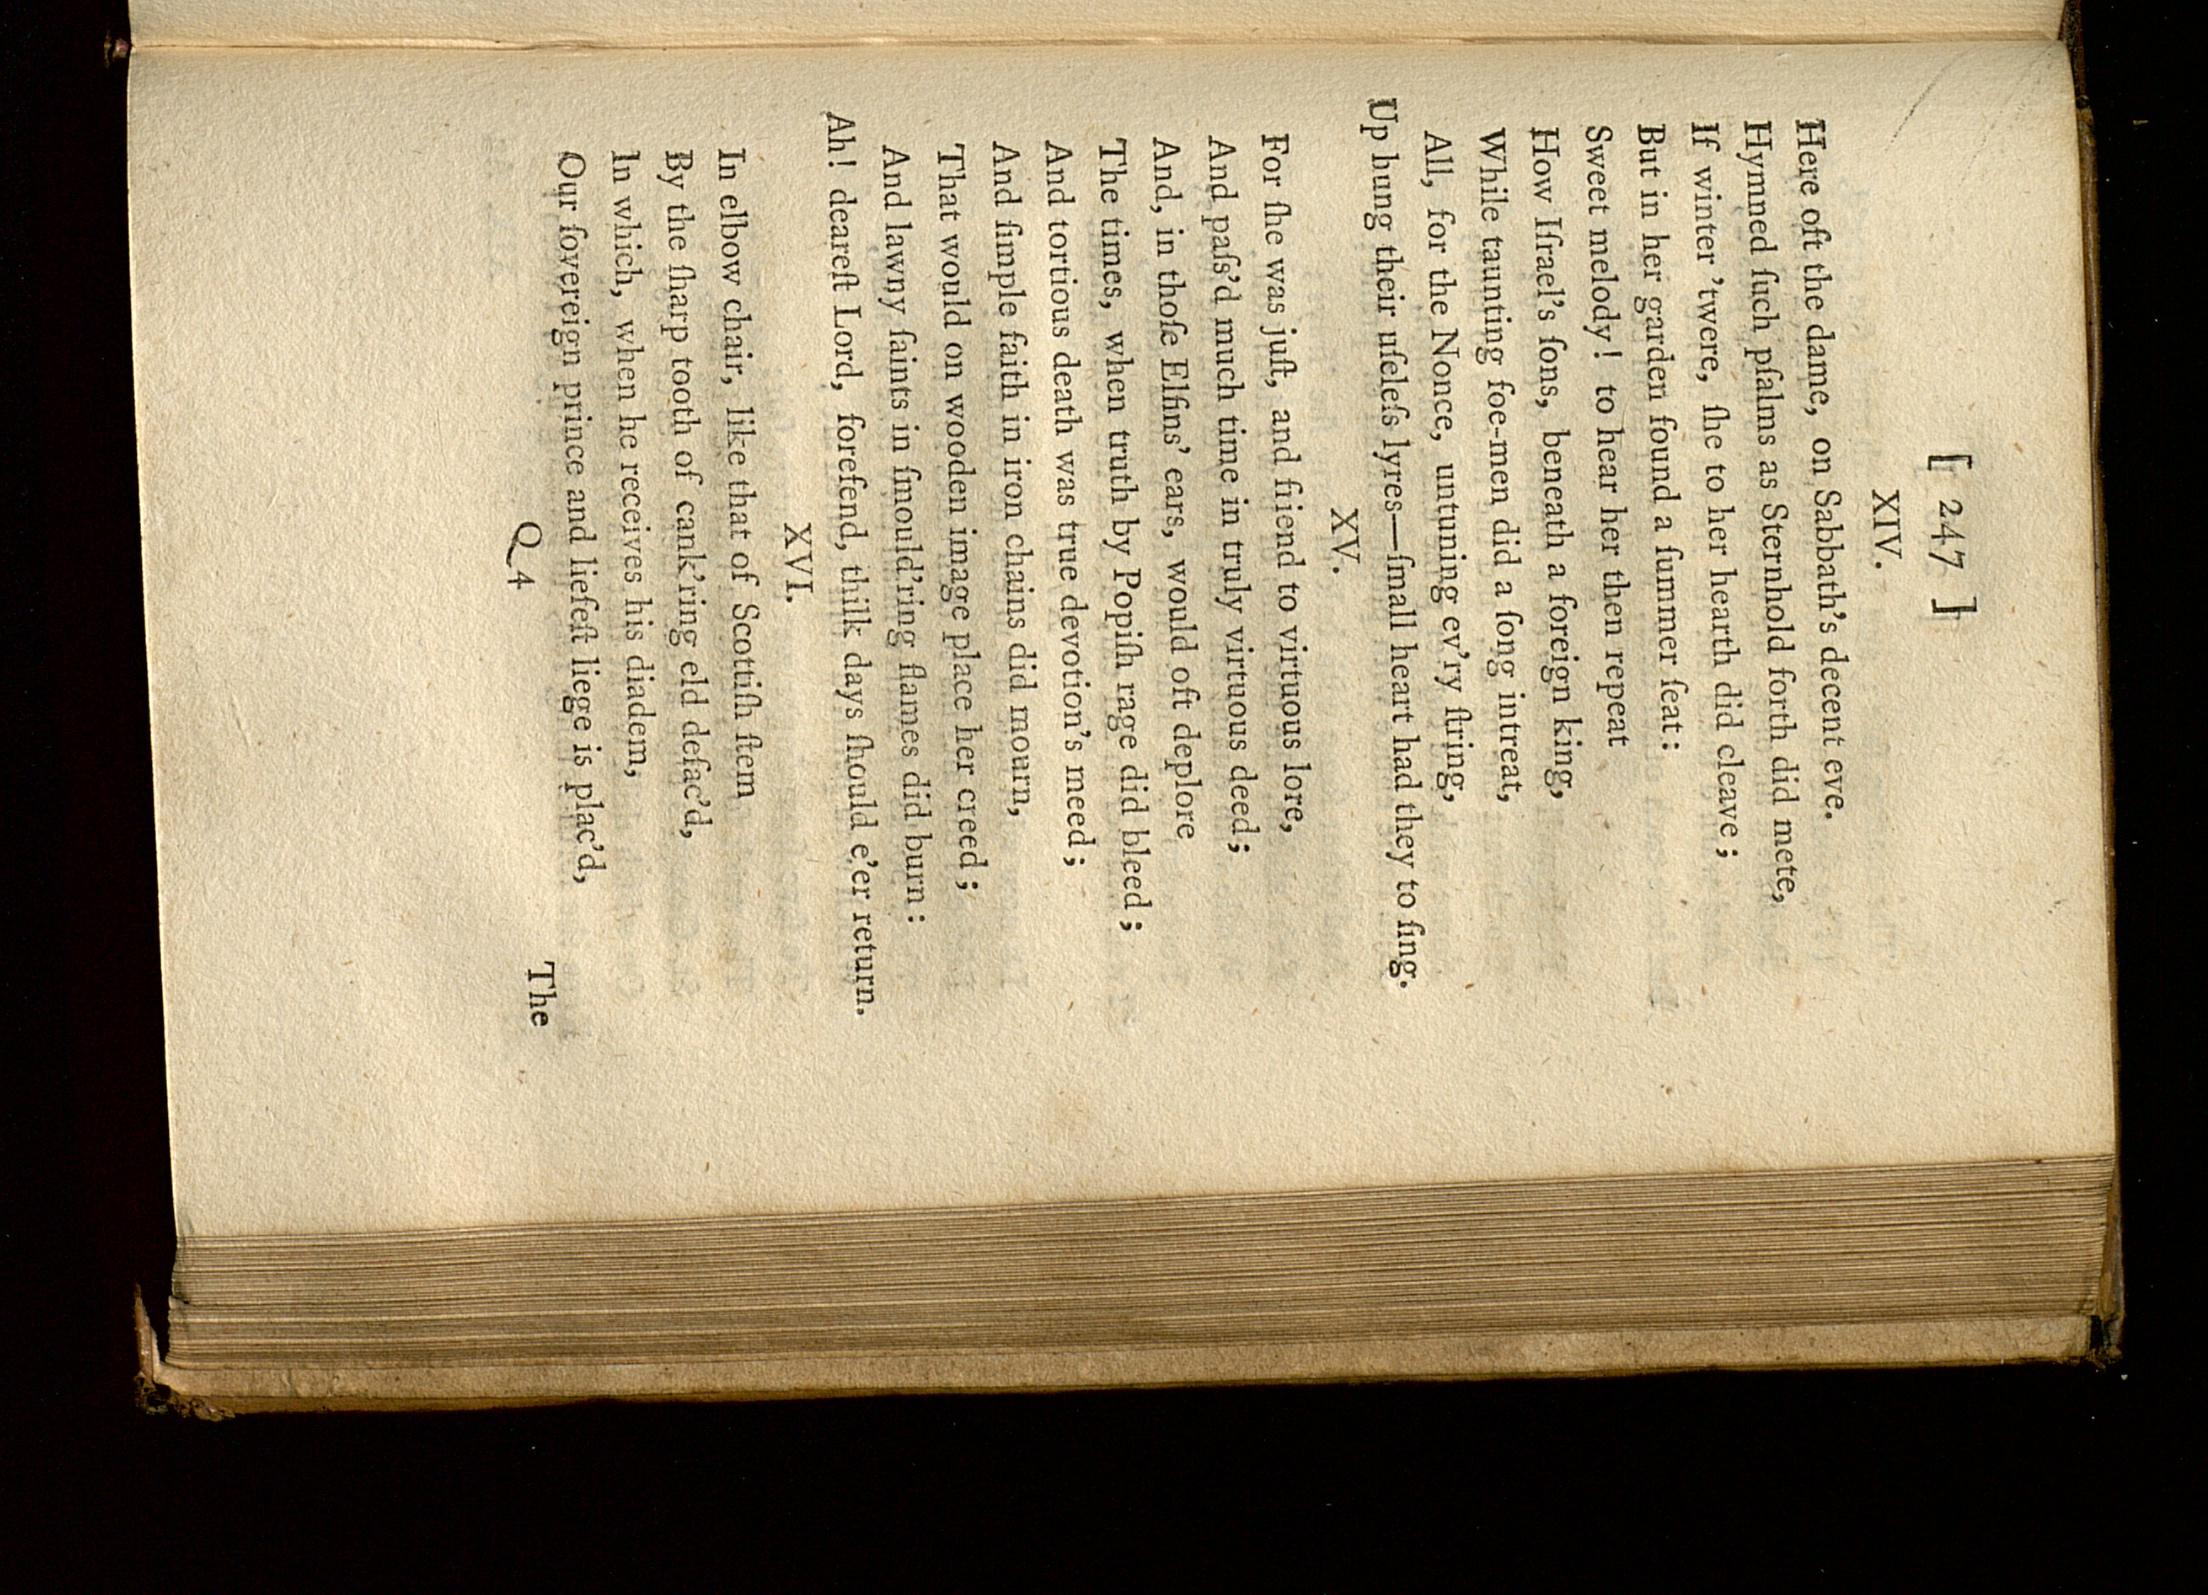 [ 247 ]
XIV.
Here oft the dame, on Sabbath's decent eve.
Hymned ſuch pſalms as Sternhold forth did mete,
If winter 'twere, ſhe to her hearth did cleave;
But in her garden found a ſummer ſeat:
Sweet melody! to hear her then repeat
How Iſrael's ſons, beneath a foreign king,
While taunting foe-men did a ſong intreat,
All, for the Nonce, untuning ev'ry ſtring,
Up hung their uſeleſs lyres—ſmall heart had they to ſing.
XV.
For ſhe was juſt, and friend to virtuous lore,
And paſs'd much time in truly virtuous deed;
And, in thoſe Elfins' ears, would oft deplore
The times, when truth by Popiſh rage did bleed;
And tortious death was true devotion's meed;
And ſimple faith in iron chains did mourn,
That would on wooden image place her creed;
And lawny ſaints in ſmould'ring flames did burn:
Ah! deareſt Lord, forefend, thilk days ſhould e'er return.
XVI.
In elbow chair, like that of Scottiſh ſtem
By the ſharp tooth of cank'ring eld defac'd,
In which, when he receives his diadem,
Our ſovereign prince and liefeſt liege is plac'd,
Q 4
The